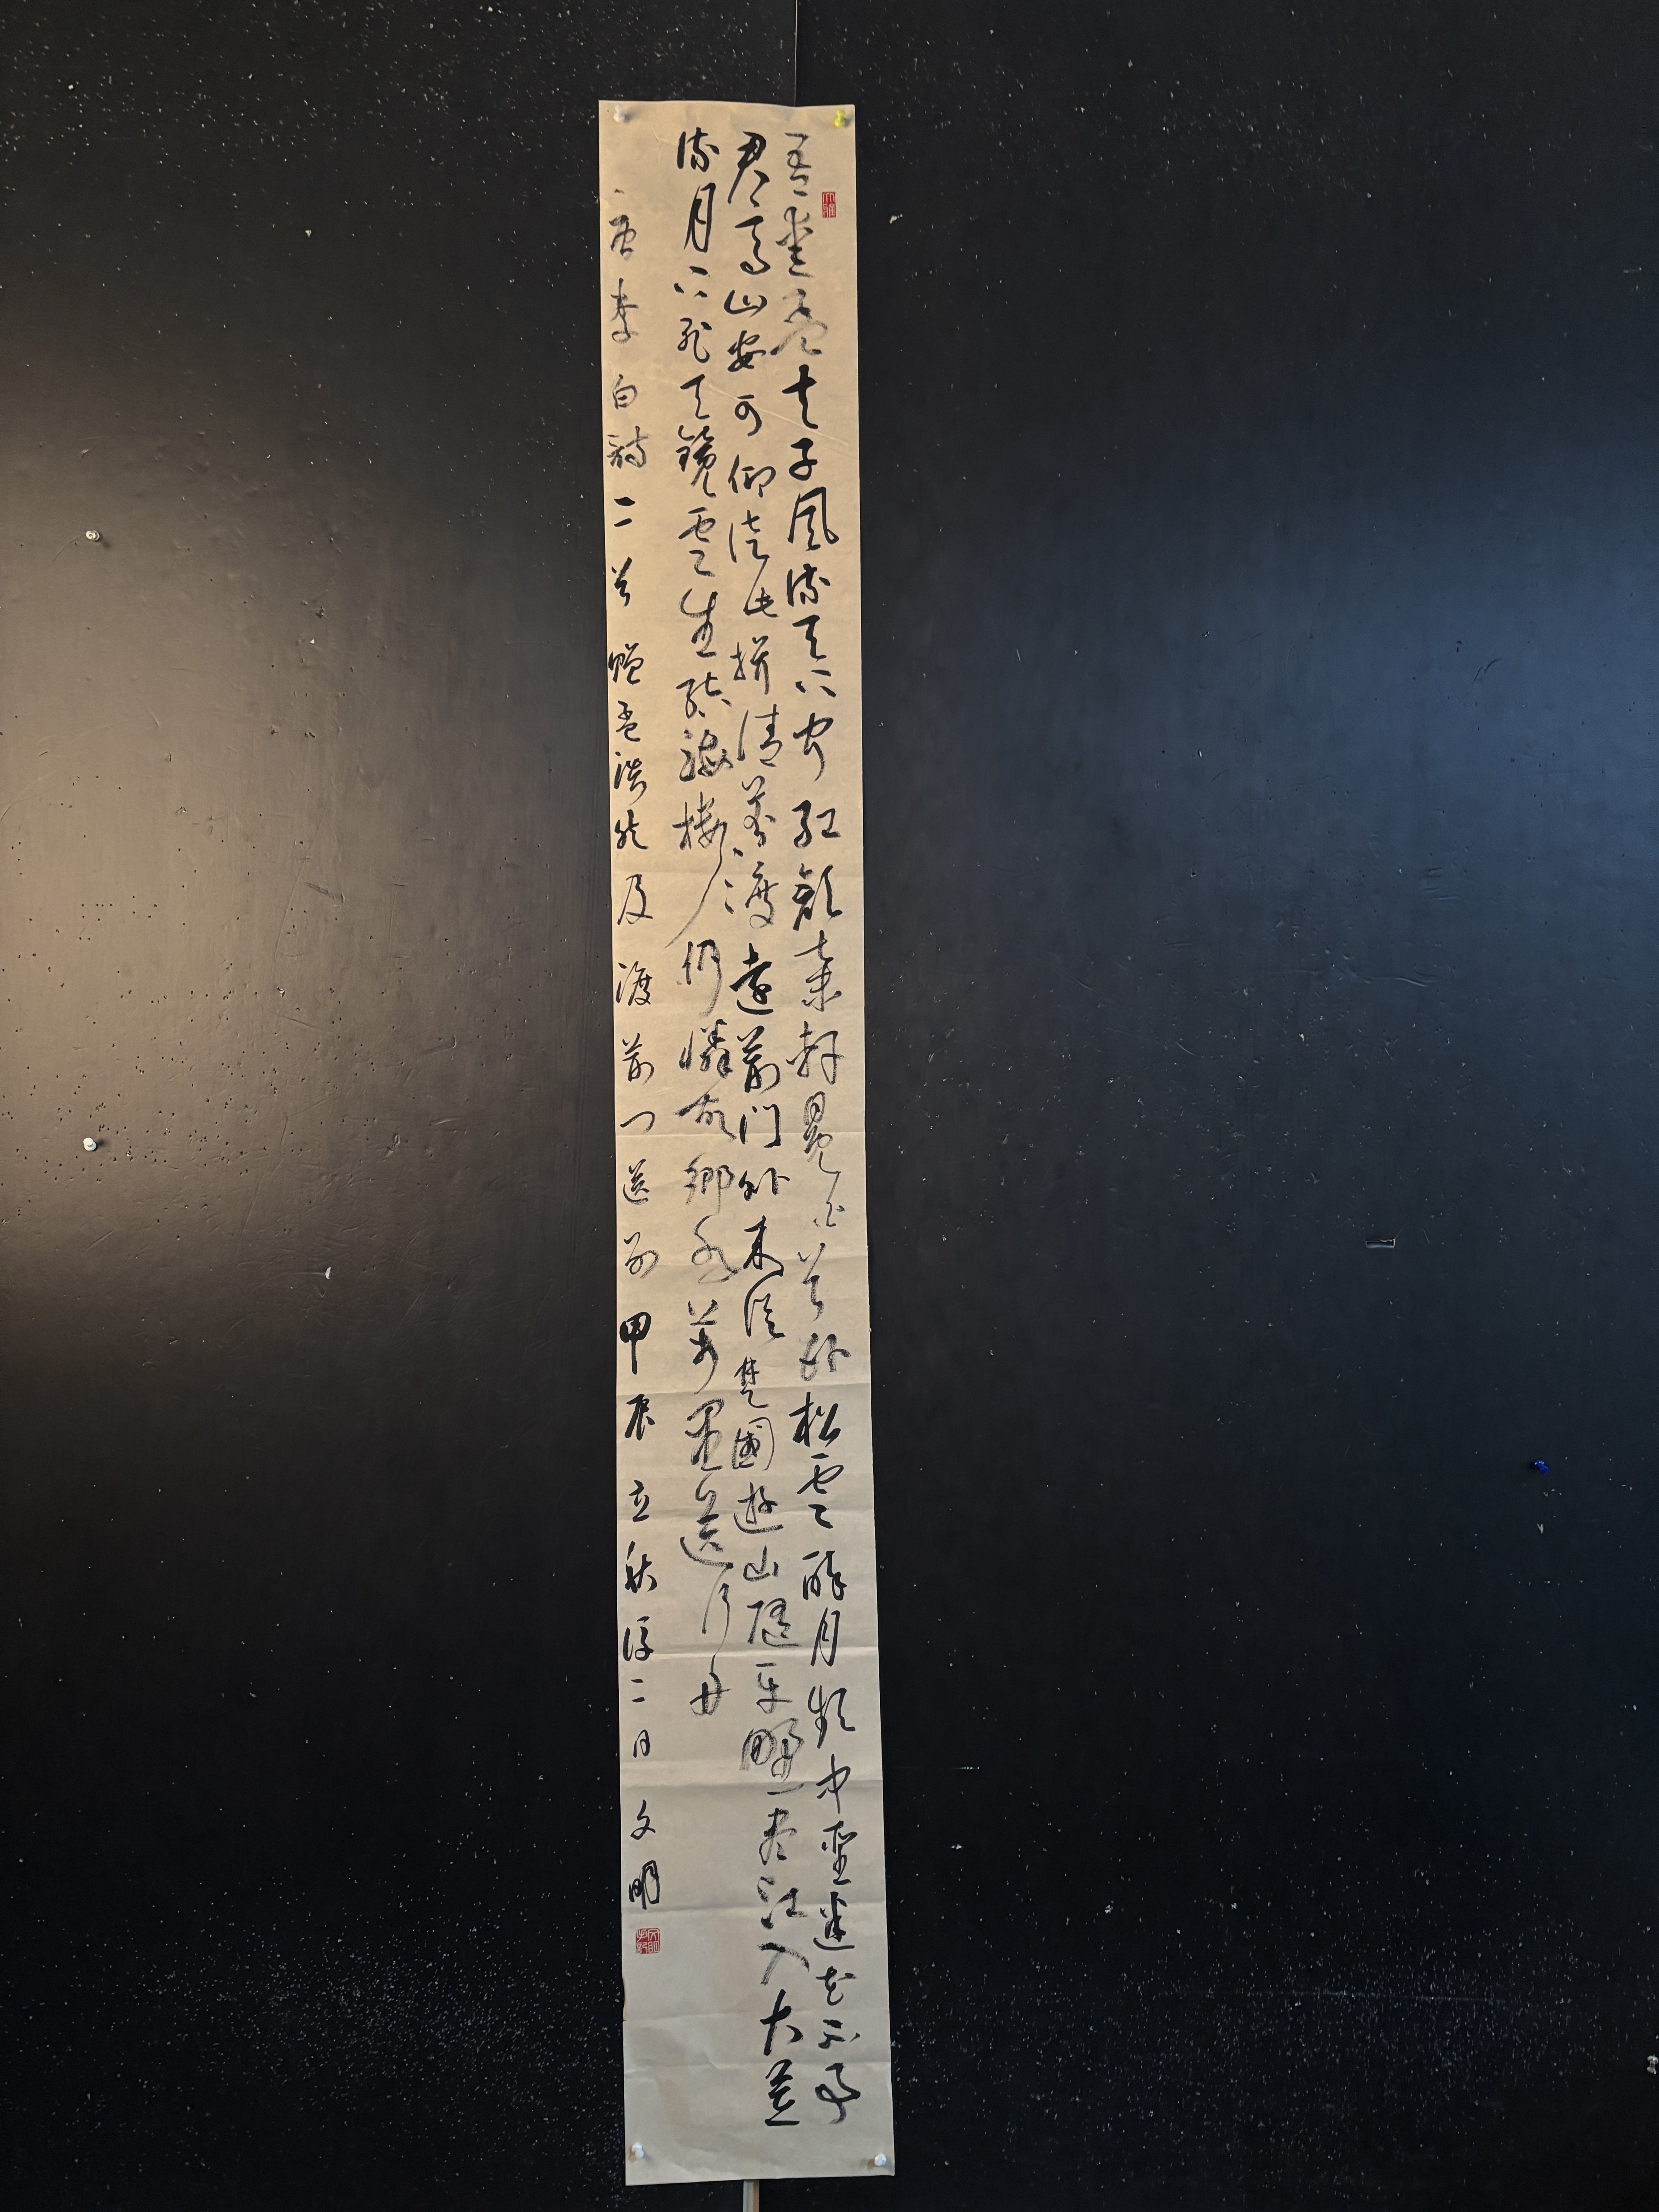 吾愛孟夫子風流天下聞紅顏棄軒冕白首卧松雲醉月頻中聖迷花不事
君高山安可仰徒此揖清芬渡遠荆门外來從楚國遊山隨平野盡江入大荒
流月下飛天鏡雲生結海樓仍憐故鄉水萬里送行舟
唐李白詩二首贈孟浩然及渡荆门送别甲辰立秋後二日文明